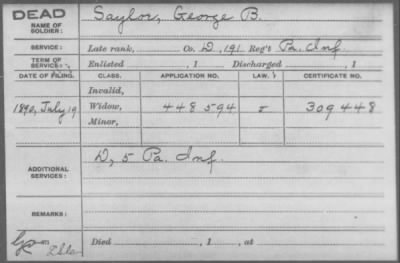 DEAD
NAME OF SOLDIER: Saylor, George B.
SERVICE: Late rank, Co. D, 191 Reg't Pa. Inf.
TERM OF SERVICE: Enlisted , 1 Discharged , 1
DATE OF FILING. CLASS. APPLICATION NO. LAW. CERTIFICATE NO.
Invalid,
1890, July 19 Widow, 448594 309448
Minor,
ADDITIONAL SERVICES: D, 5 Pa. Inf.
REMARKS:
Died , 1 , at